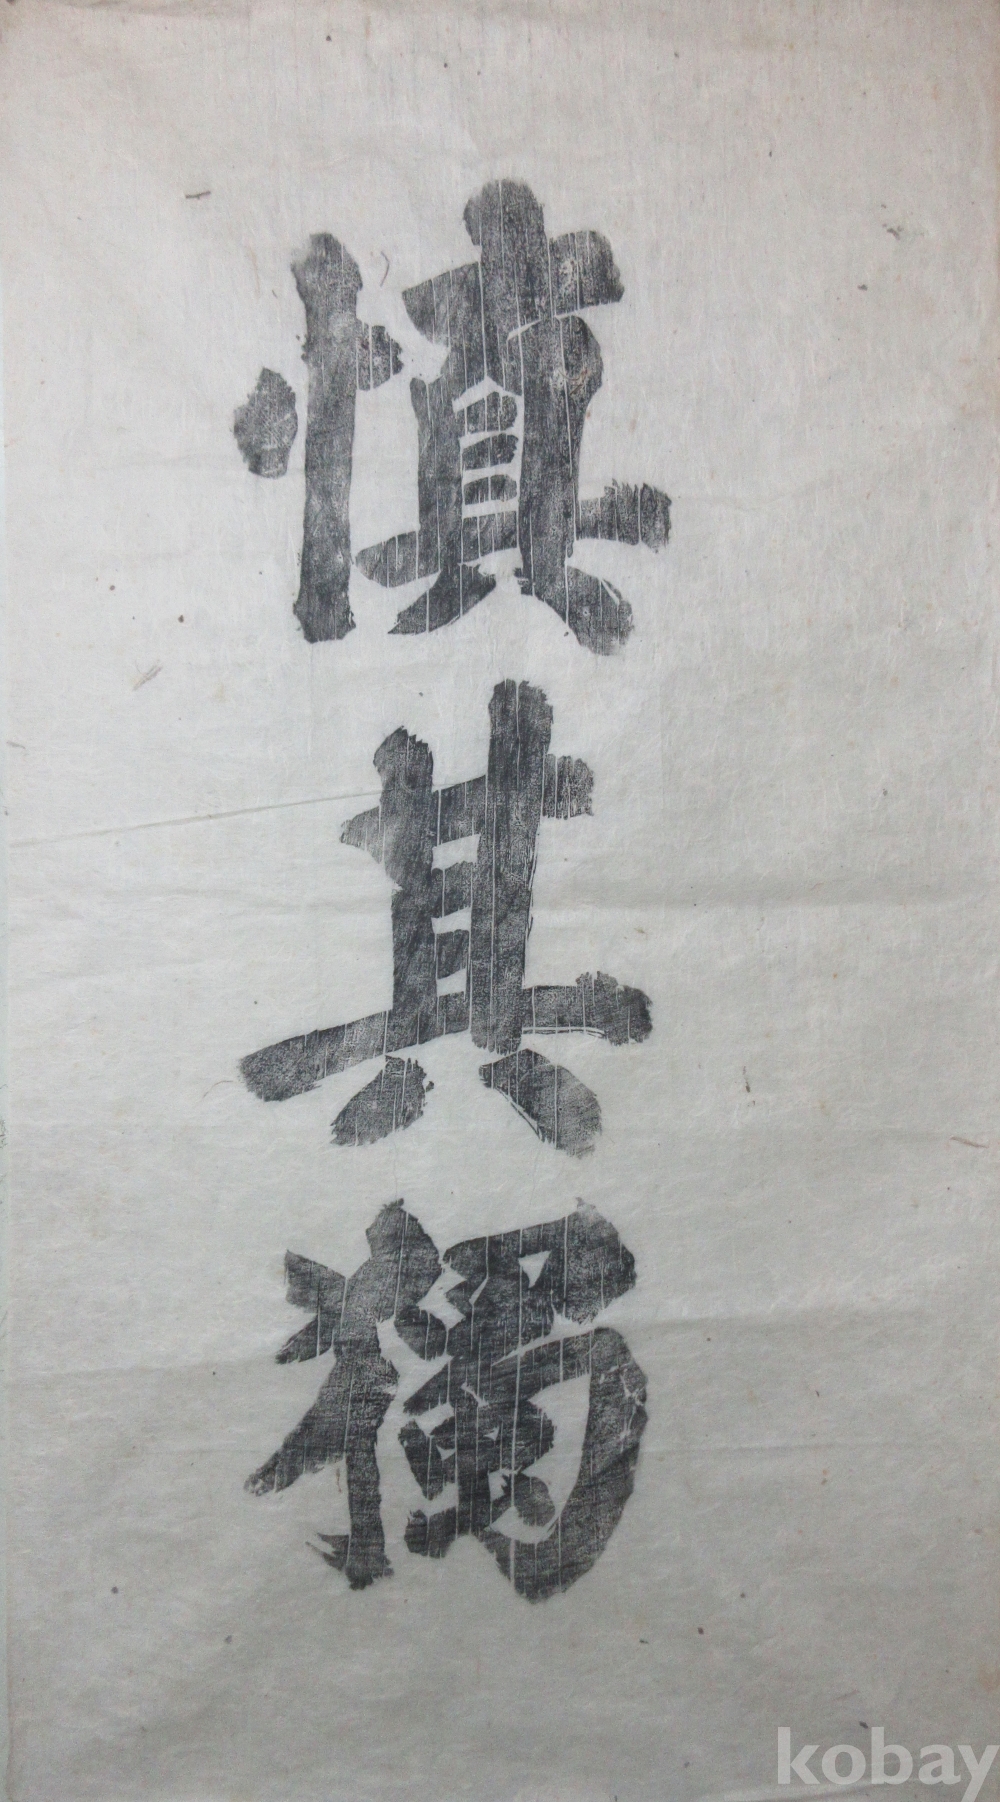 慎其獨
kobay